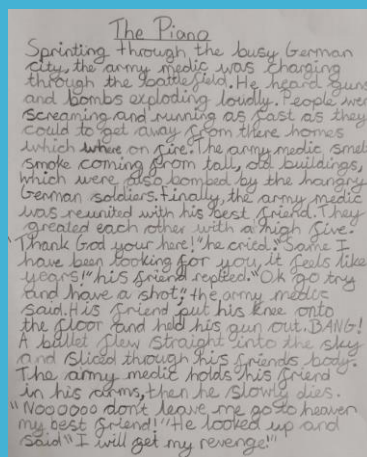 The Piano
Sprinting through the busy German
city, the army medic was charging
through the battlefield. He heard guns
and bombs exploding loudly. People were
screaming and running as fast as they
could to get away from there homes
which where on fire. The army medic smelt
smoke coming from tall, old buildings,
which were also bombed by the hangry
German soldiers. Finally, the army medic
was reunited with his best friend. They
greated each other with a high five.
"Thank God your here!" he cried. "Same I
have been looking for you, it feels like
years!" his friend replied. "Ok go try
and have a shot," the army medic
said. His friend put his knee onto
the floor and held his gun out. BANG!
A bullet flew straight into the sky
and sliced through his friends body.
The army medic holds his friend
in his arms, then he slowly dies.
"Noooooo don't leave me go to heaven
my best friend!" He looked up and
said "I will get my revenge!"